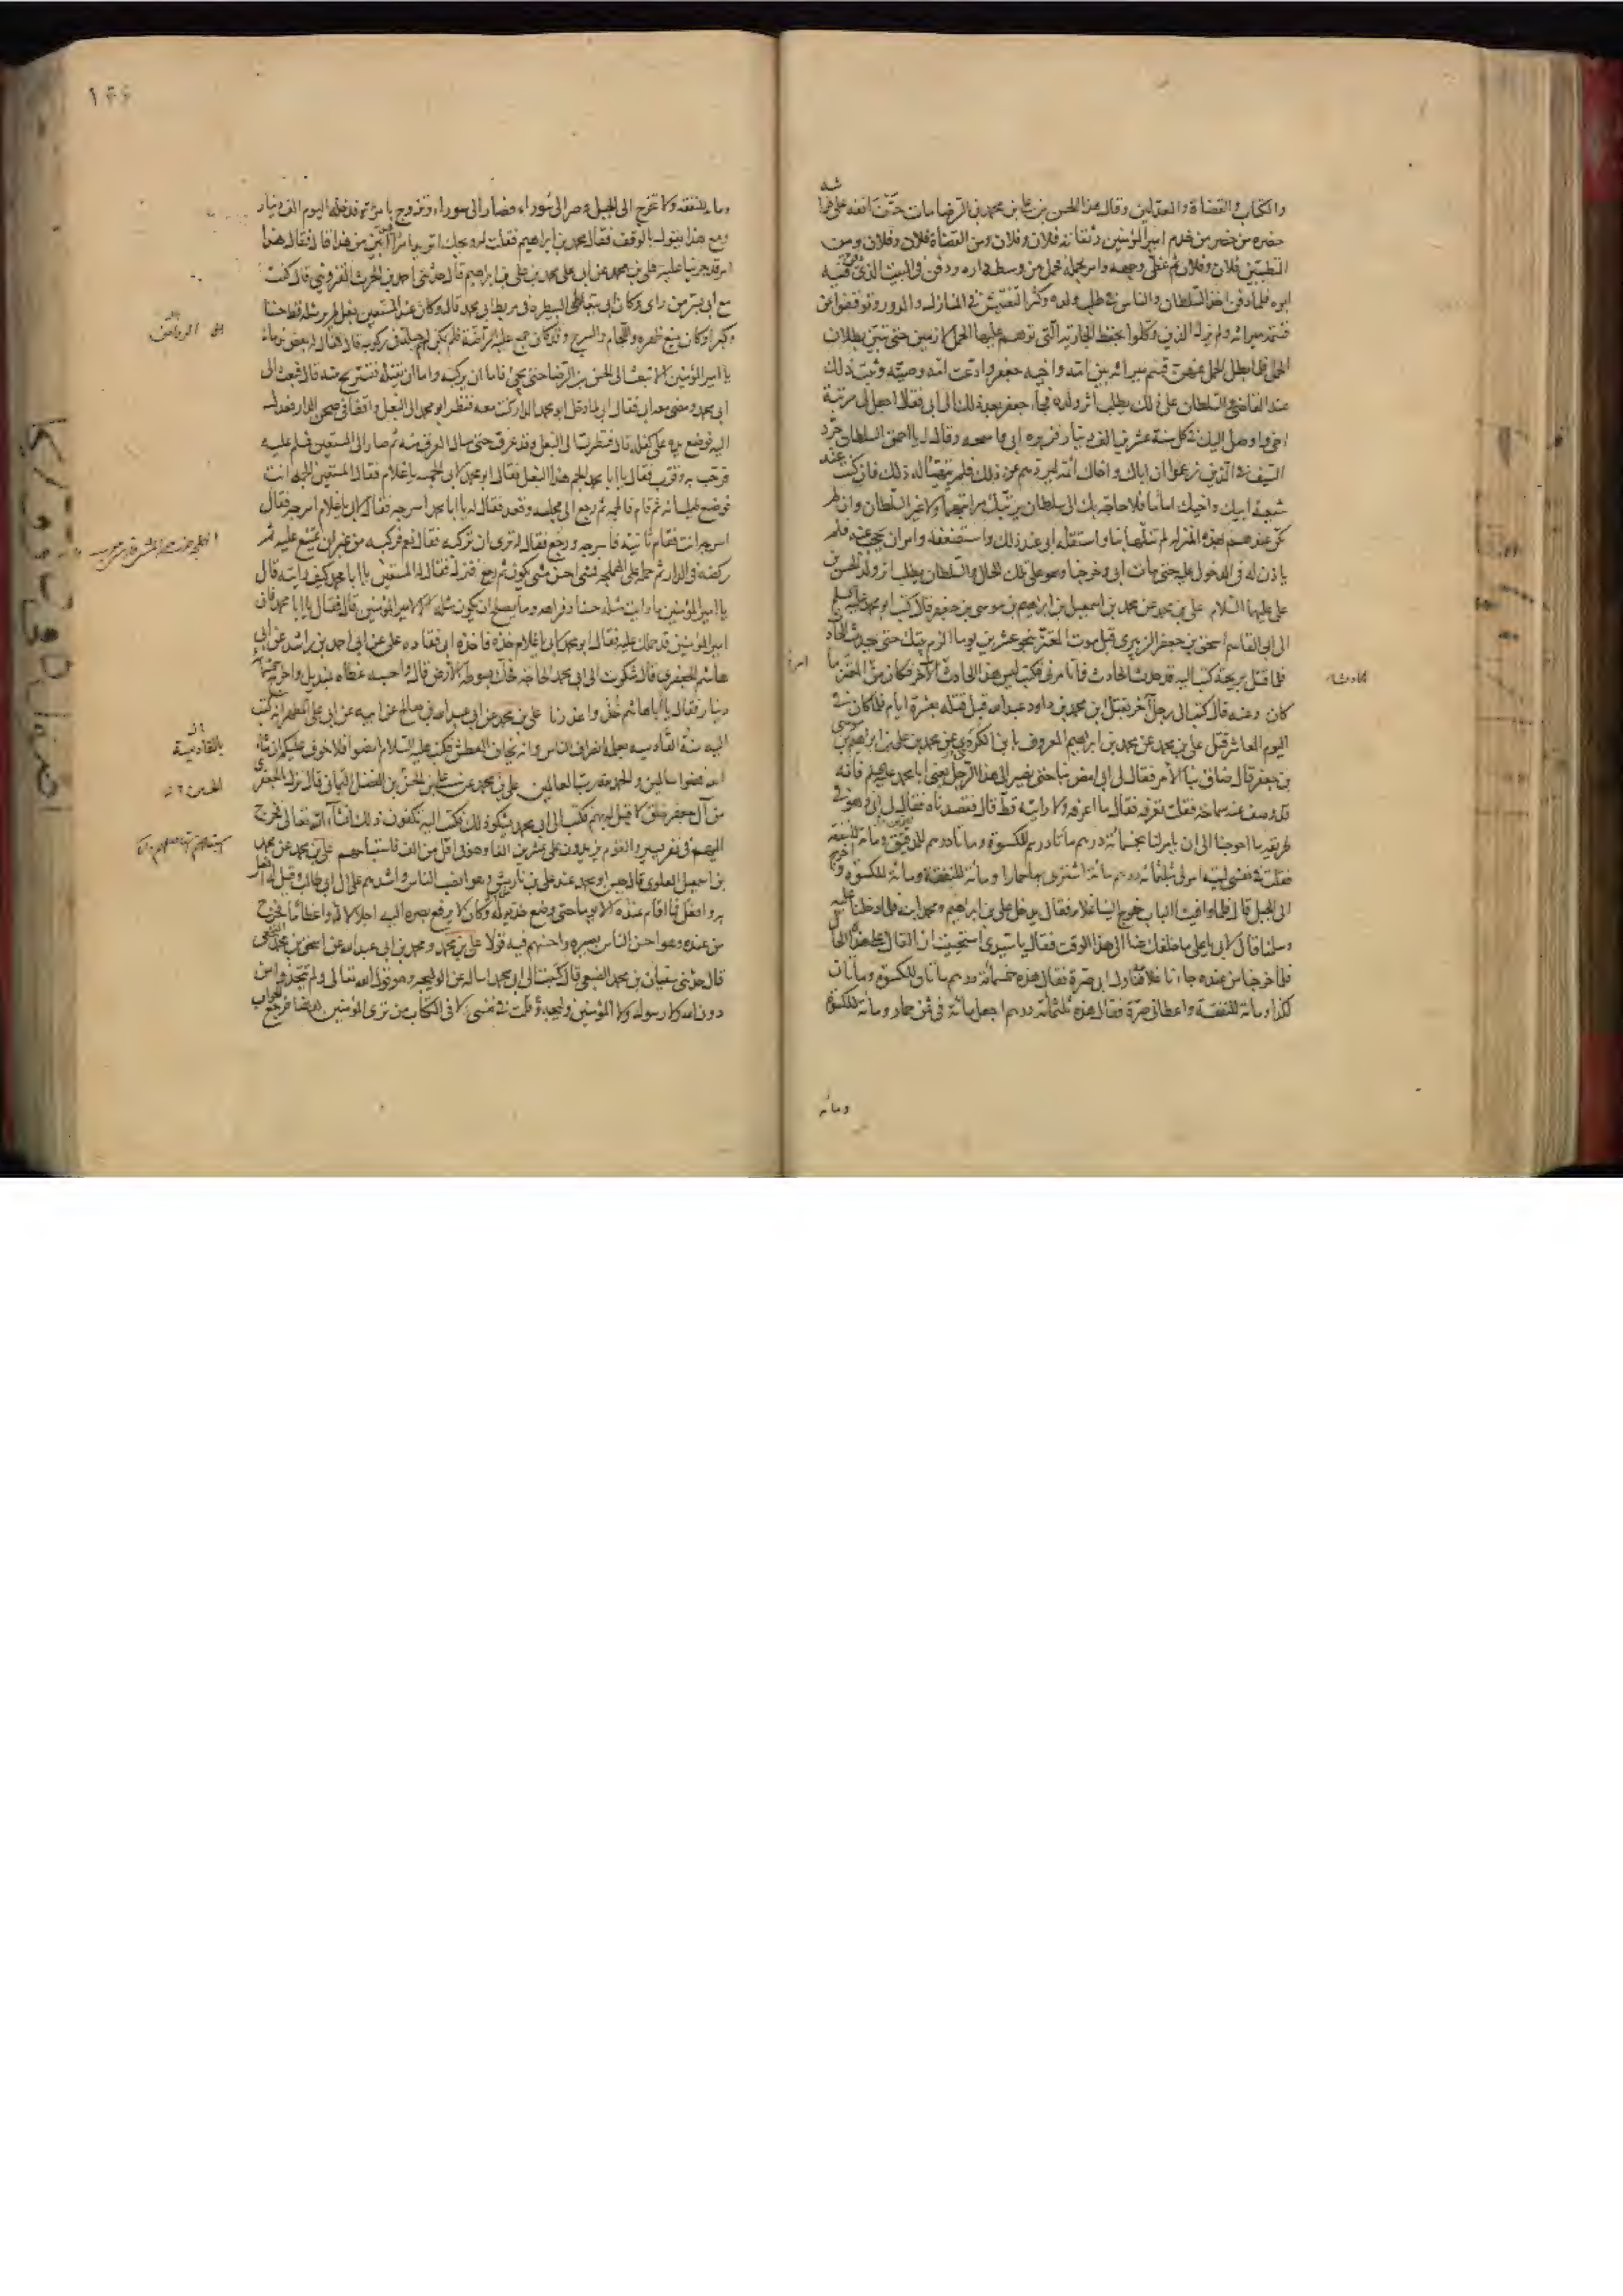 والكتاب والقضاة والمعدلين وقال هذا الحسن بن علي بن محمد بن الرضا مات حتف انفه على فراشه
حضره من حضر من خدم امير المؤمنين وثقاته فلان وفلان ومن القضاة فلان وفلان ومن
المتطببين فلان وفلان ثم غطى وجهه وامر بحمله فحمل من وسط داره ودفن في البيت الذي دفن فيه
ابوه فلما دفن اخذ السلطان والناس في طلب ولده وكثر التفتيش في المنازل والدور وتوقفوا عن
قسمة ميراثه ولم يزل الذين وكلوا بحفظ الجارية التي توهم عليها الحمل لازمين حتى تبين بطلان
الحمل فلما بطل الحمل عنهن قسم ميراثه بين امه واخيه جعفر وادعت امه وصيته وثبت ذلك
عند القاضي والسلطان على ذلك يطلب اثر ولده فجاء جعفر بعد ذلك الى ابي فقال اجعل لي مرتبة
اخي واوصل اليك في كل سنة عشرين الف دينار فزبره ابي واسمعه وقال له يا احمق السلطان جرد
السيف في الذين زعموا ان اباك واخاك ائمة ليردهم عن ذلك فلم يتهيأ له ذلك فان كنت عند
شيعة ابيك واخيك اماما فلا حاجة بك الى سلطان يرتبك مراتبهما ولا غير السلطان وان لم
تكن عندهم بهذه المنزلة لم تنلها بنا واستقله ابي عند ذلك واستضعفه وامر ان يحجب عنه فلم
ياذن له في الدخول عليه حتى مات ابي وخرجنا وهو على تلك الحال والسلطان يطلب اثر ولد الحسن بن
علي عليهما السلام علي بن محمد عن محمد بن اسمعيل بن ابراهيم بن موسى بن جعفر قال كتب ابو محمد عليه السلم
الى ابي القاسم اسحق بن جعفر الزبيري قبل موت المعتز بنحو عشرين يوما الزم بيتك حتى يحدث الحادث
فلما قتل بريحة كتب اليه قد حدث الحادث فما تامرني فكتب ليس هذا الحادث الآخر فكان من المعتز ما
كان وعنه قال كتب الى رجل آخر يقتل ابن محمد بن داود عبد الله قبل قتله بعشرة ايام فلما كان في
اليوم العاشر قتل علي بن محمد عن محمد بن ابراهيم المعروف بابن الكردي عن محمد بن علي بن ابراهيم بن موسى
بن جعفر قال ضاق بنا الامر فقال لي ابي امض بنا حتى نصير الى هذا الرجل يعني ابا محمد فانه
قد وصف عنه سماحة فقلت تعرفه فقال ما اعرفه ولا رايته قط قال فقصدناه فقال لي ابي وهو في
طريقه ما احوجنا الى ان يامر لنا بخمسمائة درهم مأتا درهم للكسوة ومأتا درهم للدقيق ومائة للنفقة
فقلت في نفسي ليته امر لي بثلثمائة درهم مائة اشتري بها حمارا ومائة للنفقة ومائة للكسوة واخرج
الى الجبل قال فلما وافينا الباب خرج الينا غلامه فقال يدخل علي بن ابراهيم ومحمد ابنه فلما دخلنا عليه
وسلمنا قال لابي يا علي ما خلفك عنا الى هذا الوقت فقال يا سيدي استحييت ان القاك على هذه الحال
فلما خرجنا من عنده جاءنا غلامه فناول ابي صرة فقال هذه خمسمائة درهم مأتان للكسوة ومأتان
كذا ومائة للنفقة واعطاني صرة فقال هذه ثلثمائة درهم اجعل مائة في ثمن حمار ومائة للكسوة
ومائة
وماية للنفقة ولا تخرج الى الجبل وصر الى سوراء فصار الى سوراء وتزوج بامرأة فدخله اليوم الف دينار
ومع هذا يقول بالوقف فقال محمد بن ابراهيم فقلت له ويحك اتريد امرا ابين من هذا قال فقال هذا
امر قد جرينا عليه علي بن محمد عن ابي علي محمد بن علي بن ابراهيم قال حدثني احمد بن الحرث القزويني قال كنت
مع ابي بسر من راى وكان ابي يتعاطى البيطرة في مربط ابي محمد قال وكان عند المستعين بغل لم ير مثله قط حسنا
وكبرا وكان يمنع ظهره واللجام والسرج وقد كان جمع عليه الراضة فلم يكن لهم حيلة في ركوبه قال فقال له بعض ندمائه
يا امير المؤمنين الا تبعث الى الحسن بن الرضا حتى يجيئ فاما ان يركبه واما ان يقتله فتستريح منه قال فبعث الى
ابي محمد ومضى معه ابي فقال ابي لما دخل ابو محمد الدار كنت معه فنظر ابو محمد الى البغل واقفا في صحن الدار فعدل
اليه فوضع يده على كفله قال فنظرت الى البغل وقد عرق حتى سال العرق منه ثم صار الى المستعين فسلم عليه
فرحب به وقرب فقال يا ابا محمد الجم هذا البغل فقال ابو محمد لابي الجمه يا غلام فقال المستعين الجمه انت
فوضع طيلسانه ثم قام فالجمه ثم رجع الى مجلسه وقعد فقال له يا ابا محمد اسرجه فقال لابي يا غلام اسرجه فقال
اسرجه انت فقام ثانية فاسرجه ورجع فقال له ترى ان تركبه فقال نعم فركبه من غير ان يمتنع عليه ثم
ركضه في الدار ثم حمله على الهملجة فمشى احسن مشي يكون ثم رجع فنزل فقال له المستعين يا ابا محمد كيف رايته قال
يا امير المؤمنين ما رايت مثله حسنا وفراهة وما يصلح ان يكون مثله الا لامير المؤمنين قال فقال يا ابا محمد فان
امير المؤمنين قد حملك عليه فقال ابو محمد لابي يا غلام خذه فاخذه ابي فقاده علي عن ابي احمد بن راشد عن ابي
هاشم الجعفري قال شكوت الى ابي محمد الحاجة فحك بسوطه الارض قال واحسبه غطاه بمنديل واخرج خمسمائة
دينار فقال يا ابا هاشم خذ واعذرنا علي بن محمد عن ابي عبد الله بن صالح عن ابيه عن ابي علي المطهر انه كتب
اليه سنة القادسية يعلمه انصراف الناس وانه يخاف العطش فكتب عليه السلام امضوا فلا خوف عليكم ان شاء
الله فمضوا سالمين والحمد لله رب العالمين علي بن محمد عن علي بن الحسن بن الفضل اليماني قال نزل بالجعفري
من آل جعفر خلق لا قبل له بهم فكتب الى ابي محمد يشكو ذلك فكتب اليه تكفون ذلك ان شاء الله تعالى فخرج
اليهم في نفر يسير والقوم يزيدون على عشرين الفا وهو في اقل من الف فاستباحهم علي بن محمد عن محمد
بن اسمعيل العلوي قال حبس ابو محمد عند علي بن نارمش وهو انصب الناس واشدهم على آل ابي طالب وقيل له افعل
به وافعل فما اقام عنده الا يوما حتى وضع خديه له وكان لا يرفع بصره اليه اجلالا واعظاما فخرج
من عنده وهو احسن الناس بصيرة واحسنهم فيه قولا علي بن محمد ومحمد بن ابي عبد الله عن اسحق بن محمد النخعي
قال حدثني سفيان بن محمد الضبعي قال كتبت الى ابي محمد اساله عن الوليجة وهو قول الله تعالى ولم يتخذوا من
دون الله ولا رسوله ولا المؤمنين وليجة وقلت في نفسي لا في الكتاب من ترى المؤمنين هاهنا فرجع الجواب
بالقادسية